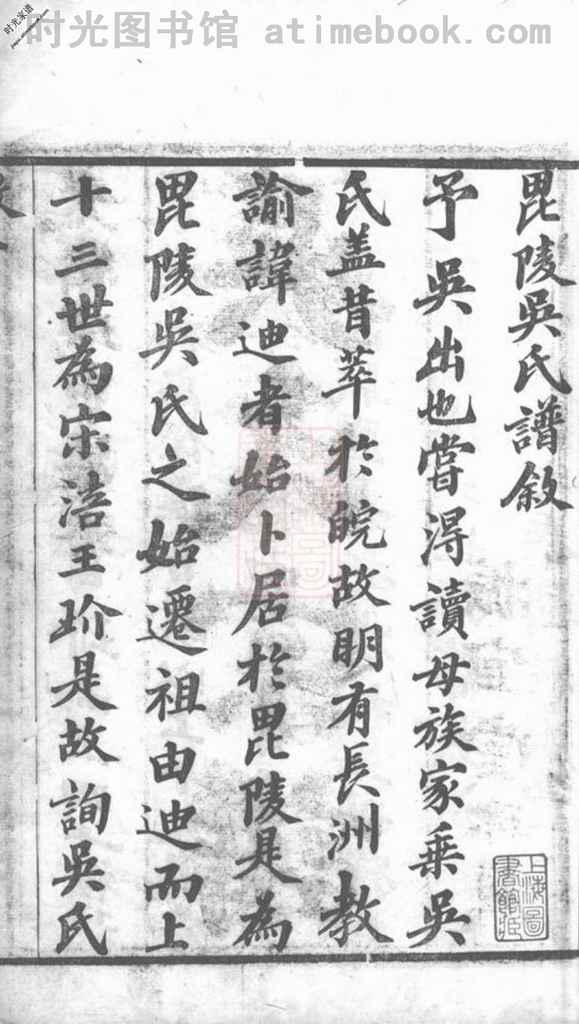 时光图书馆 atimebook.com
时光家谱
毘陵吳氏譜敘
予吳出也嘗得讀母族家乗吳
氏盖昔萃於皖故明有長洲教
諭諱迪者始卜居於毘陵是為
毘陵吳氏之始遷祖由迪而上
十三世為宋涪王玠是故詢吳氏
上海圖
書館藏